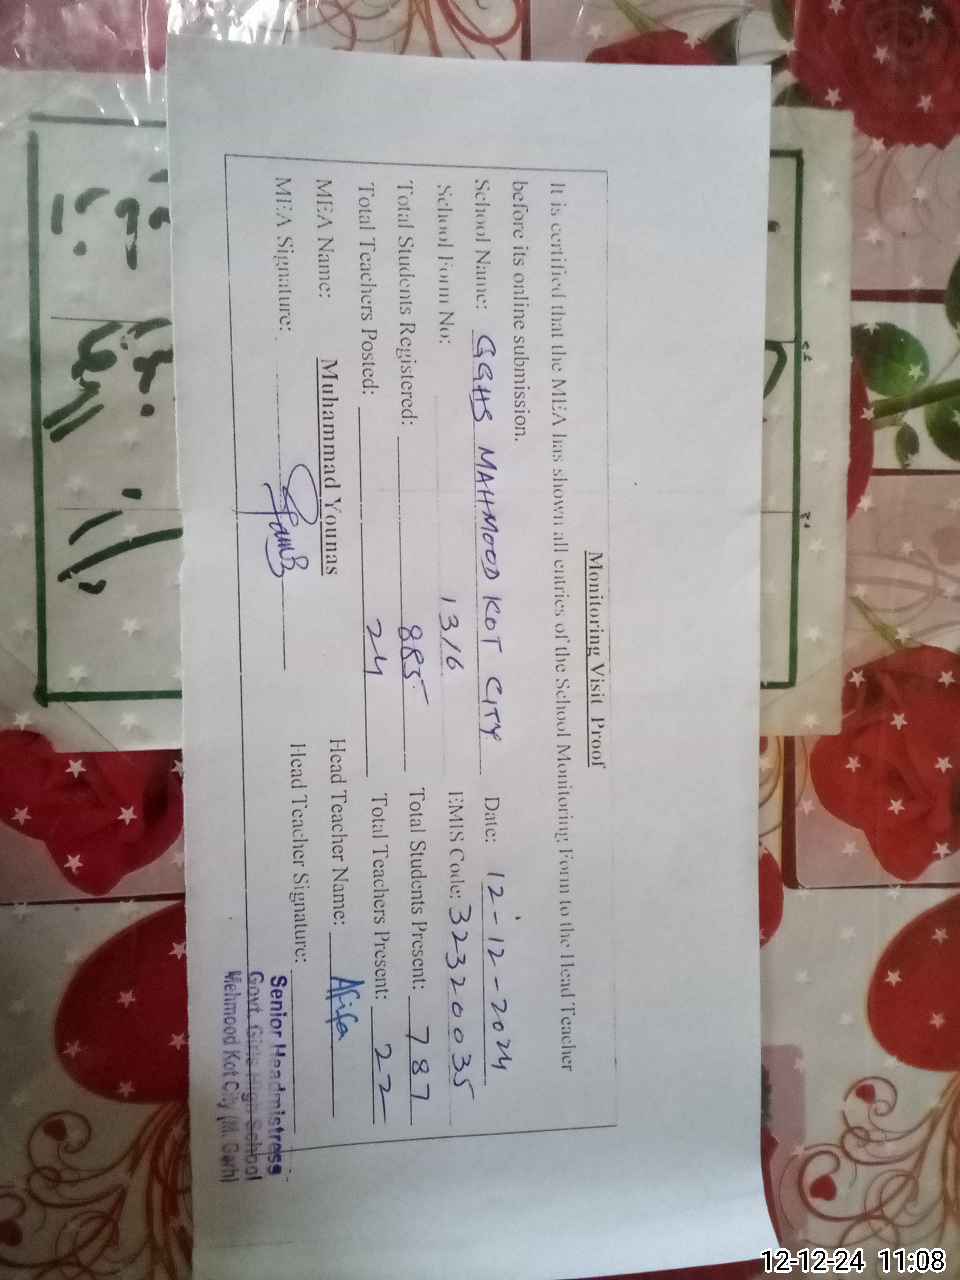 Monitoring Visit Proof
It is certified that the MEA has shown all entries of the School Monitoring Form to the Head Teacher
before its online submission.
School Name: GGHS MAHMOOD KOT CITY Date: 12-12-2024
School Form No: 1316 EMIS Code: 32320035
Total Students Registered: 885 Total Students Present: 787
Total Teachers Posted: 24 Total Teachers Present: 22
MEA Name: Muhammad Younas Head Teacher Name: Afifa
MEA Signature: Head Teacher Signature:
Senior Headmistress
Govt. Girls High School
Mehmood Kot City (M. Garh)
12-12-24 11:08